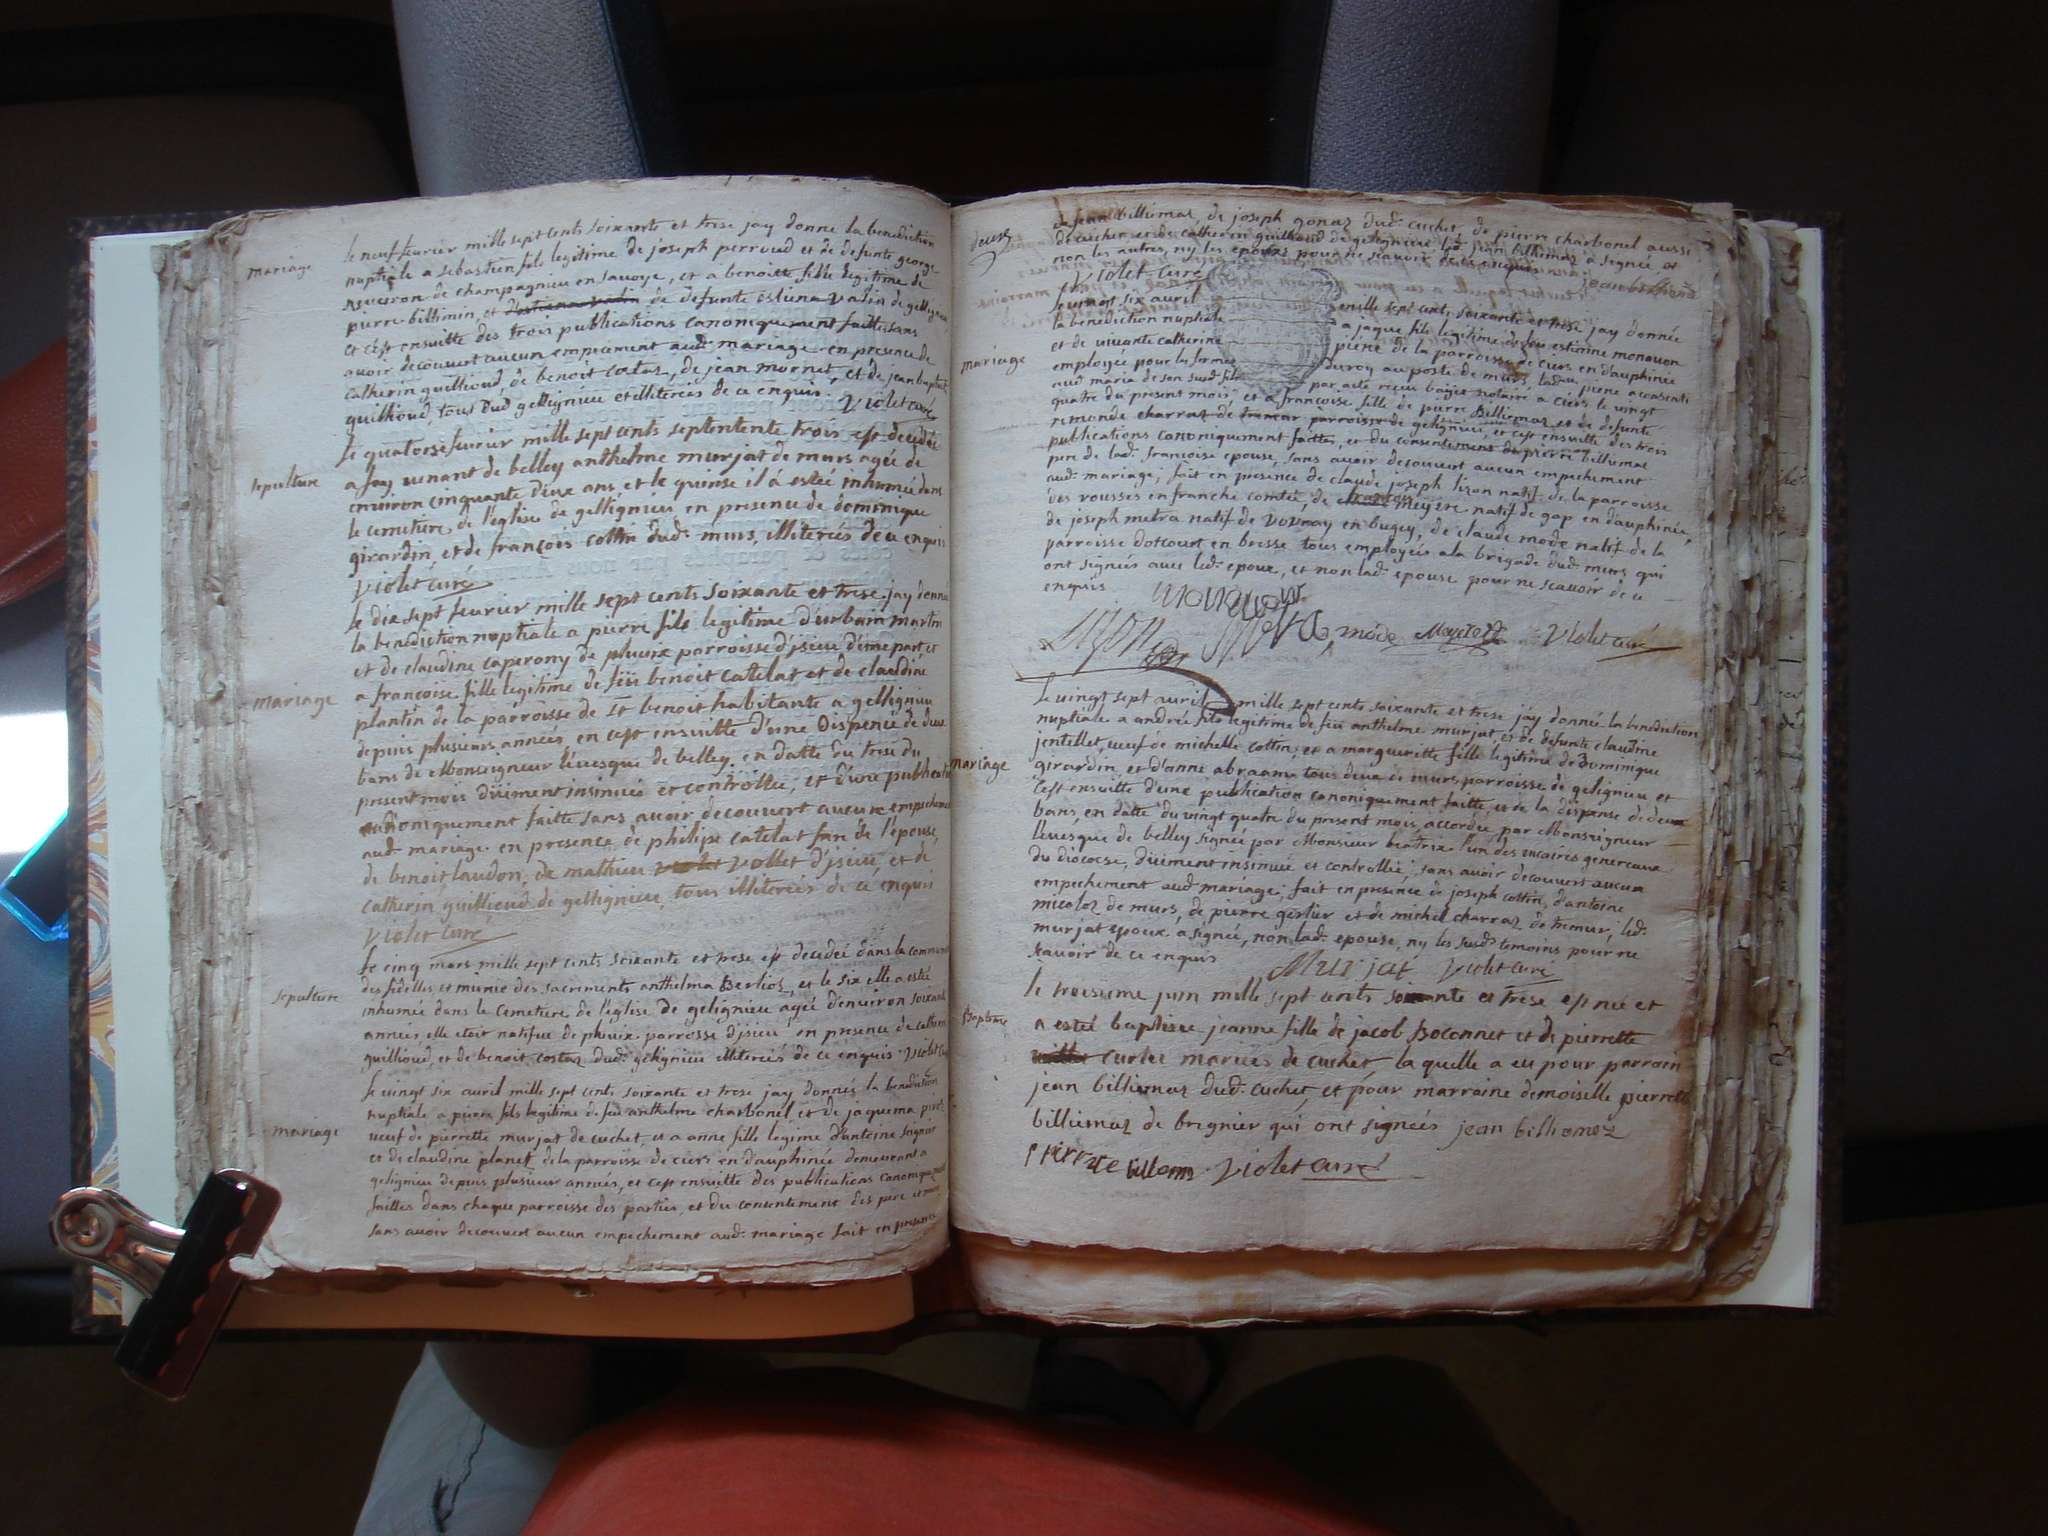 mariage
le neuf fevrier mille sept cents soixante et trese jay donne la benediction
nuptiale a sebastien fils legitime de joseph perroud et de defunte george
de champagnieu en savoye, et a benoitte fille legitime de
pierre billimin, et de defunte esliena vadin de
et c'est ensuitte des trois publications canoniquement faittes sans
avoir decouvert aucun empeciement aud. mariage en presence de
catherin guillioud, de benoit costaz, de jean mornet, et de jean baptiste
guillioud, tous dud. gellignieu et illiterés de ce enquis. Violet curé
sepulture
le quatorse fevrier mille sept cents septentente trois est decedée
a foy venant de belley anthelme murjat de murs agée de
environ cinquante deux ans et le quinse il à estée inhumée dans
le cemetiere de l'eglise de gellignieu en presence de dominique
girardin, et de françois cottin dud. murs, illiterés de ce enquis
Violet curé
mariage
le dix sept fevrier mille sept cents soixante et trese jay donne
la benediction nuptiale a pierre fils legitime d'urbain martin
et de claudine caperony de pluvix parroisse d'jsieu d'une part, et
a françoise fille legitime de feü benoit catelat et de claudine
plantin de la parroisse de St benoit habitante a gellignieu
depuis plusieurs années en cest ensuitte d'une dispence de deux
bans de Monseigneur l'évesque de belley, en datte du trese du
present mois düement insinuée et controllée, et d'une publication
canoniquement faitte sans avoir decouvert aucun empechement
aud. mariage en presence de philipe catelat fare de l'epouse,
de benoit laudon, de mathieu Vollet d'jsieu, et de
catherin guillioud de gellignieu, tous illiterés de ce enquis
Violet curé
sepulture
le cinq mars mille sept cents soixante et trese est decedée dans la communion
des fidelles et munie des sacrements anthelma Berlioz, et le six elle a estée
inhumée dans le cemetiere de l'eglise de gelignieu agée d'environ soixante
années elle etoit natifve de pluvix parroisse d'jsieu en presence de catherin
guillioud, et de benoit costaz dud. gelignieu illiterés de ce enquis. Violet curé
mariage
le vingt six avril mille sept cents soixante et trese jay donnés la benediction
nuptiale a pierre fils legitime de feu anthelme charbonel et de jaquema
veuf de pierrette murjat de cuchet, et a anne fille legime d'antoine seignier
et de claudine planet de la parroisse de ciers en dauphinée demeurant a
gelignieu depuis plusieur années, et c'est ensuitte des publications canoniquement
faittes dans chaque parroisse des parties, et du consentement des pere et mere
sans avoir decouvert aucun empechement aud. mariage fait en presence
deux
de jean billiemaz, de joseph gonaz dud. cuchet, de pierre charbonel aussi
de cuchet et de catherin guilloud de gelignieu led. jean billiemaz a signée et
non les autres, ny les epoux pour ne scavoir de ce enquis
Violet curé
mariage
le vingt six avril mille sept cents soixante et trese jay donnée
la benediction nuptiale a jaque fils legitime de feu estienne monavon
et de vivante catherine piére de la parroisse de ciers en dauphinée
employée pour les fermes du roy au poste de murs, lad. piere
aud. maria de son susd. fils par acte recu notaire a ciers le vingt
quatre du present mois, et a françoise fille de pierre Billiemaz et de defunte
remonde charraz de gelignieu, et c'est ensuitte des trois
publications canoniquement faittes, et du consentement de pierre billiemaz
pere de lad. francoise epouse, sans avoir decouvert aucun empechement
aud. mariage; fait en presence de claude joseph lizon natif de la parroisse
des rousses en franche comtée, de meyere natif de gap en dauphinée,
de joseph metra natif de vovray en bugey, de claude mode natif de la
parroisse dotcourt en bresse tous employés a la brigade dud. murs qui
ont signées avec led. epoux, et non lad. epouse pour ne scavoir de ce
enquis
monavon
Lizon Metra, mode Meyere Violet curé
mariage
le vingt sept avril mille sept cents soixante et trese jay donné la benediction
nuptiale a andrée fils legitime de feu anthelme murjat et de defunte claudine
jentellet, veuf de michelle cottin, et a marguerite fille legitime de Dominique
girardin, et d'anne abraam tous deux de murs parroisse de gelignieu et
c'est ensuitte d'une publication canoniquement faitte, et de la dispense de deux
bans, en datte du vingt quatre du present mois, accordée par Monseigneur
l'evesque de belley signée par Monsieur beatrix l'un des vicaires genereaux
du diocese, düement insinuée et controllée, sans avoir decouvert aucun
empechement aud. mariage; fait en presence de joseph cottin, d'antoine
micoloz de murs, de pierre gerlier et de michel charraz de tremur, led.
murjat epoux a signée, non lad. epouse, ny les susd. temoins pour ne
scavoir de ce enquis
Murjat Violet curé
Baptême
le troisieme juin mille sept cents soixante et trese est née et
a esteé baptisée jeanne fille de jacob Boconnet et de pierrette
curlet mariés de cuchet, la quelle a eu pour parrain
jean billiemaz dud. cuchet, et pour marraine demoiselle pierrette
billiemaz de bregnier qui ont signées jean billiomoz
pierrete billiemaz Violet curé